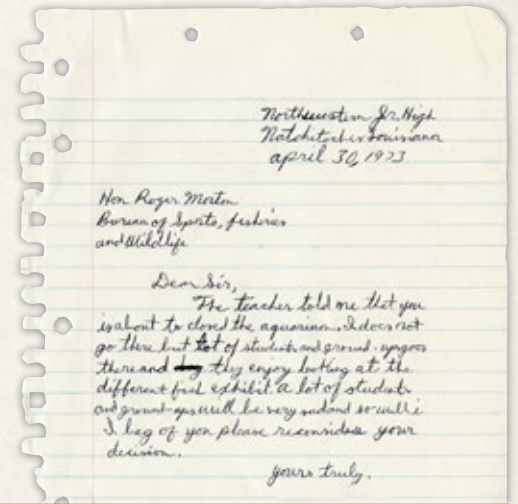 Northwestern Jr. High
Natchitoches Louisiana
april 30, 1973
Hon Roger Morton
Bureau of Sports, fisheries
and Wildlife
Dear Sir,
The teacher told me that you
is about to closed the aquarium. I does not
go there but lot of students and ground-ups goes
there and they enjoy looking at the
different fish exhibit. A lot of students
and ground-ups will be very sad and so will i
I beg of you please reconsider your
decision.
yours truly.